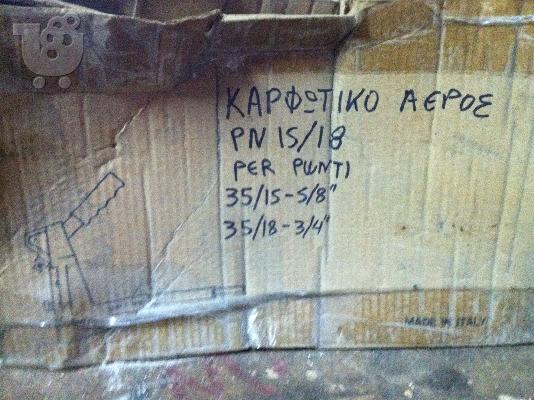 ΚΑΡΦΩΤΙΚΟ ΑΕΡΟΣ
PN 15/18
PER PUNTI
35/15-5/8"
35/18-3/4"
MADE IN ITALY